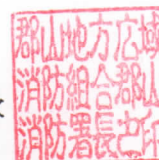 郡山地方広域
消防組合郡山
消防署長之印